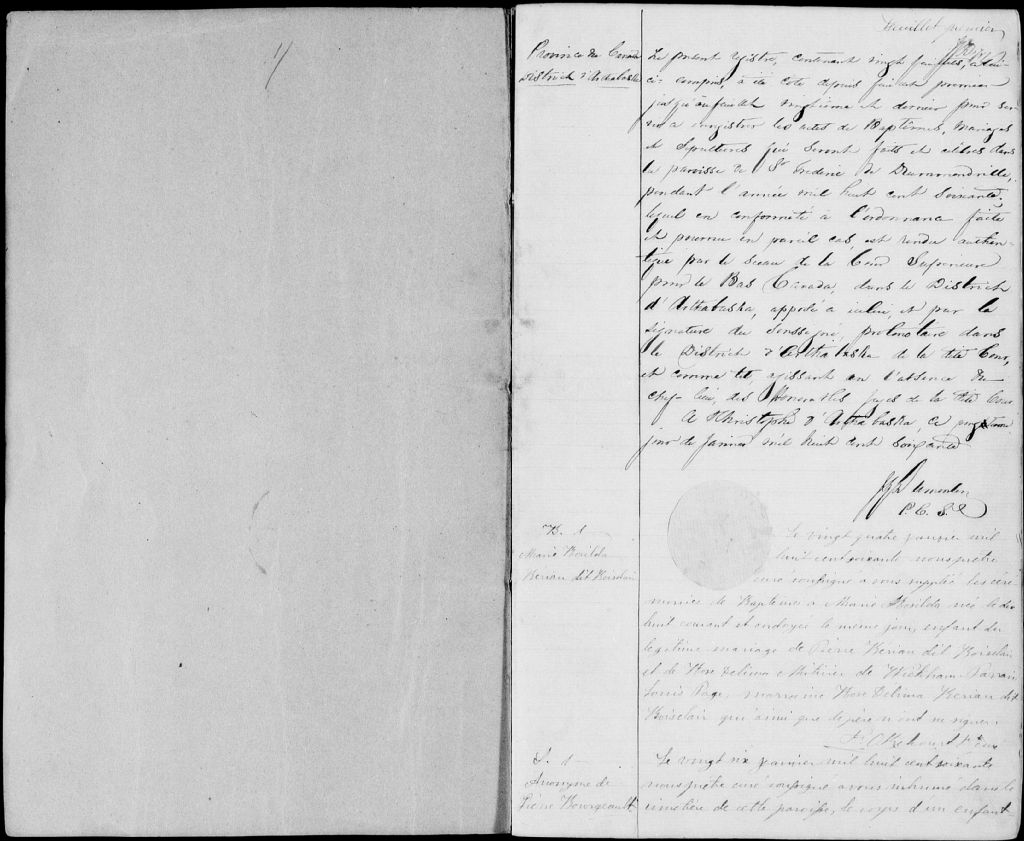 11
feuillet premier
Province du Canada
District d'Arthabaska
Le présent registre, contenant vingt feuillets, celui-
ci compris, a été coté depuis feuillet premier
jusqu'au feuillet vingtième et dernier pour ser-
vir à enregistrer les actes de Baptêmes, Mariages
et Sépultures qui seront faits et célébrés dans
la paroisse de St Frederic de Drummondville,
pendant l'année mil huit cent soixante,
lequel en conformité à l'ordonnance faite
et pourvue en pareil cas, est rendu authen-
tique par le sceau de la Cour Supérieure
pour le Bas Canada, dans le District
d'Arthabaska, apposé à icelui, et par la
signature du Soussigné, protonotaire dans
le District d'Arthabaska de la dite Cour,
et comme tel, agissant en l'absence du
chef-lieu, des Honorables juges de la dite Cour
A St Christophe d'Arthabaska, ce
jour de janvier mil huit cent soixante
P. C. S.
B. 1
Marie Rosilda
Kerian dit Boisclair
Le vingt quatre janvier mil
huit cent soixante nous prêtre
curé soussigné avons suppléé les céré
monies de Baptême à Marie Rosilda née le dix
huit courant et ondoyée le même jour, enfant du
legitime mariage de Pierre Kerian dit Boisclair
et de Rose Delima de Wickham. Parrain
Louis Page, marraine Rose Delima Kerian dit
Boisclair qui ainsi que le père n'ont su signer.
Ptre
S. 1
Anonyme de
Pierre Bourgeault
Le vingt six janvier mil huit cent soixante
nous prêtre curé soussigné avons inhumé dans le
cimetière de cette paroisse, le corps d'un enfant